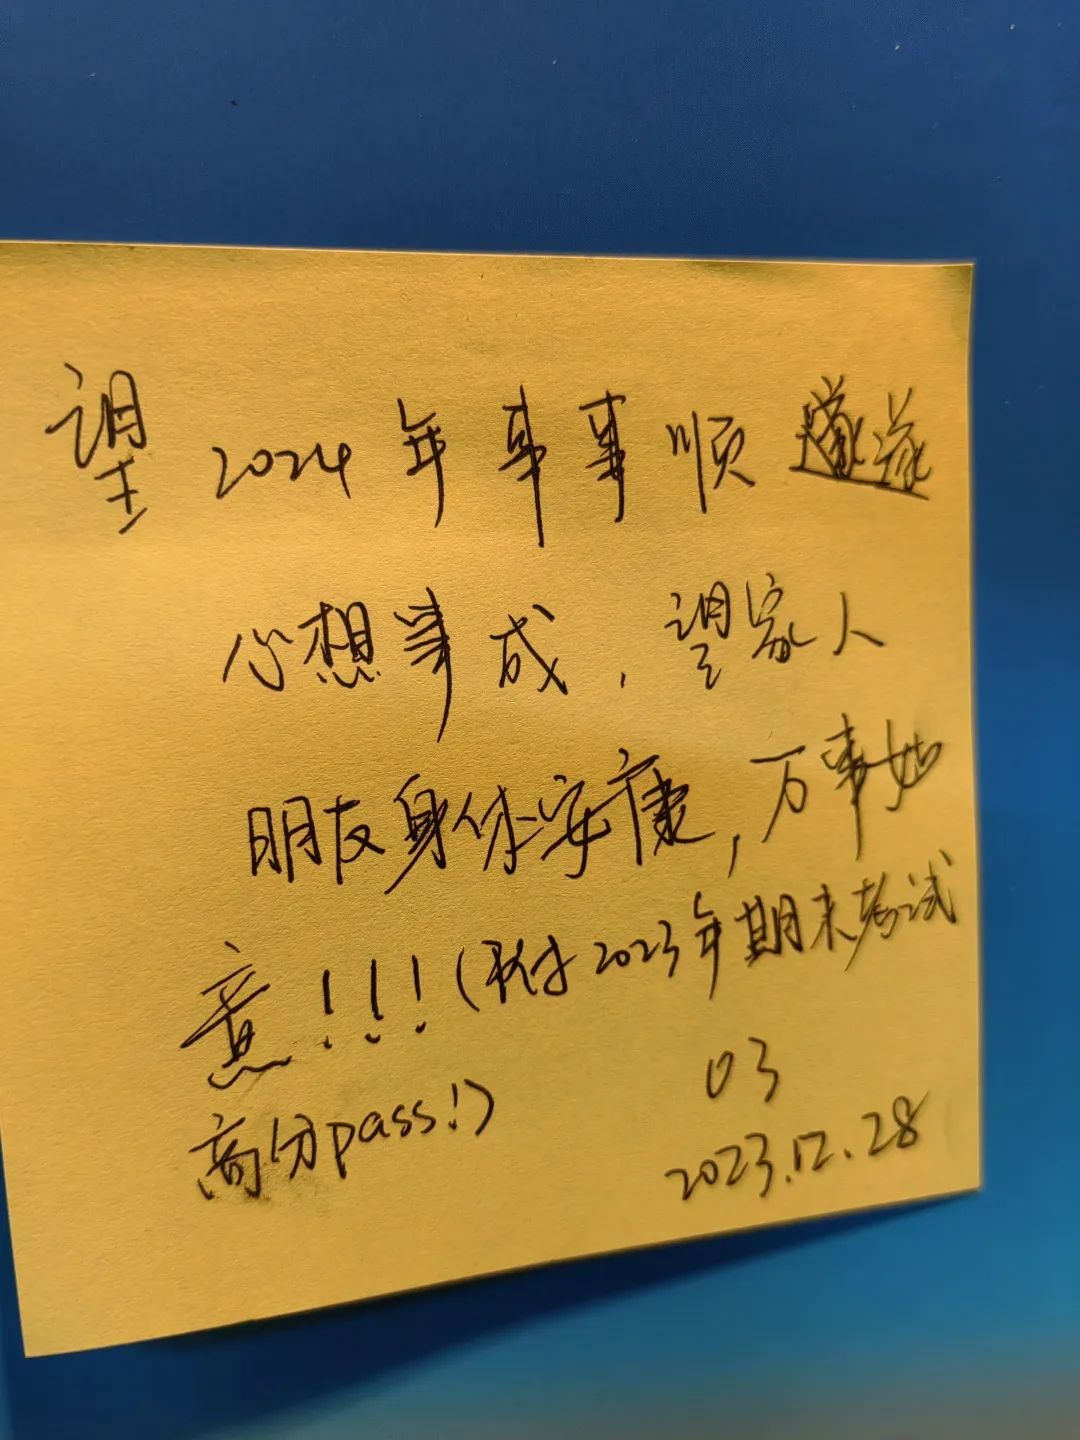 望 2024 年事事顺遂
心想事成，望家人
朋友身体安康，万事如
意！！！（附 2023年期末考试
高分pass！）
03
2023.12.28